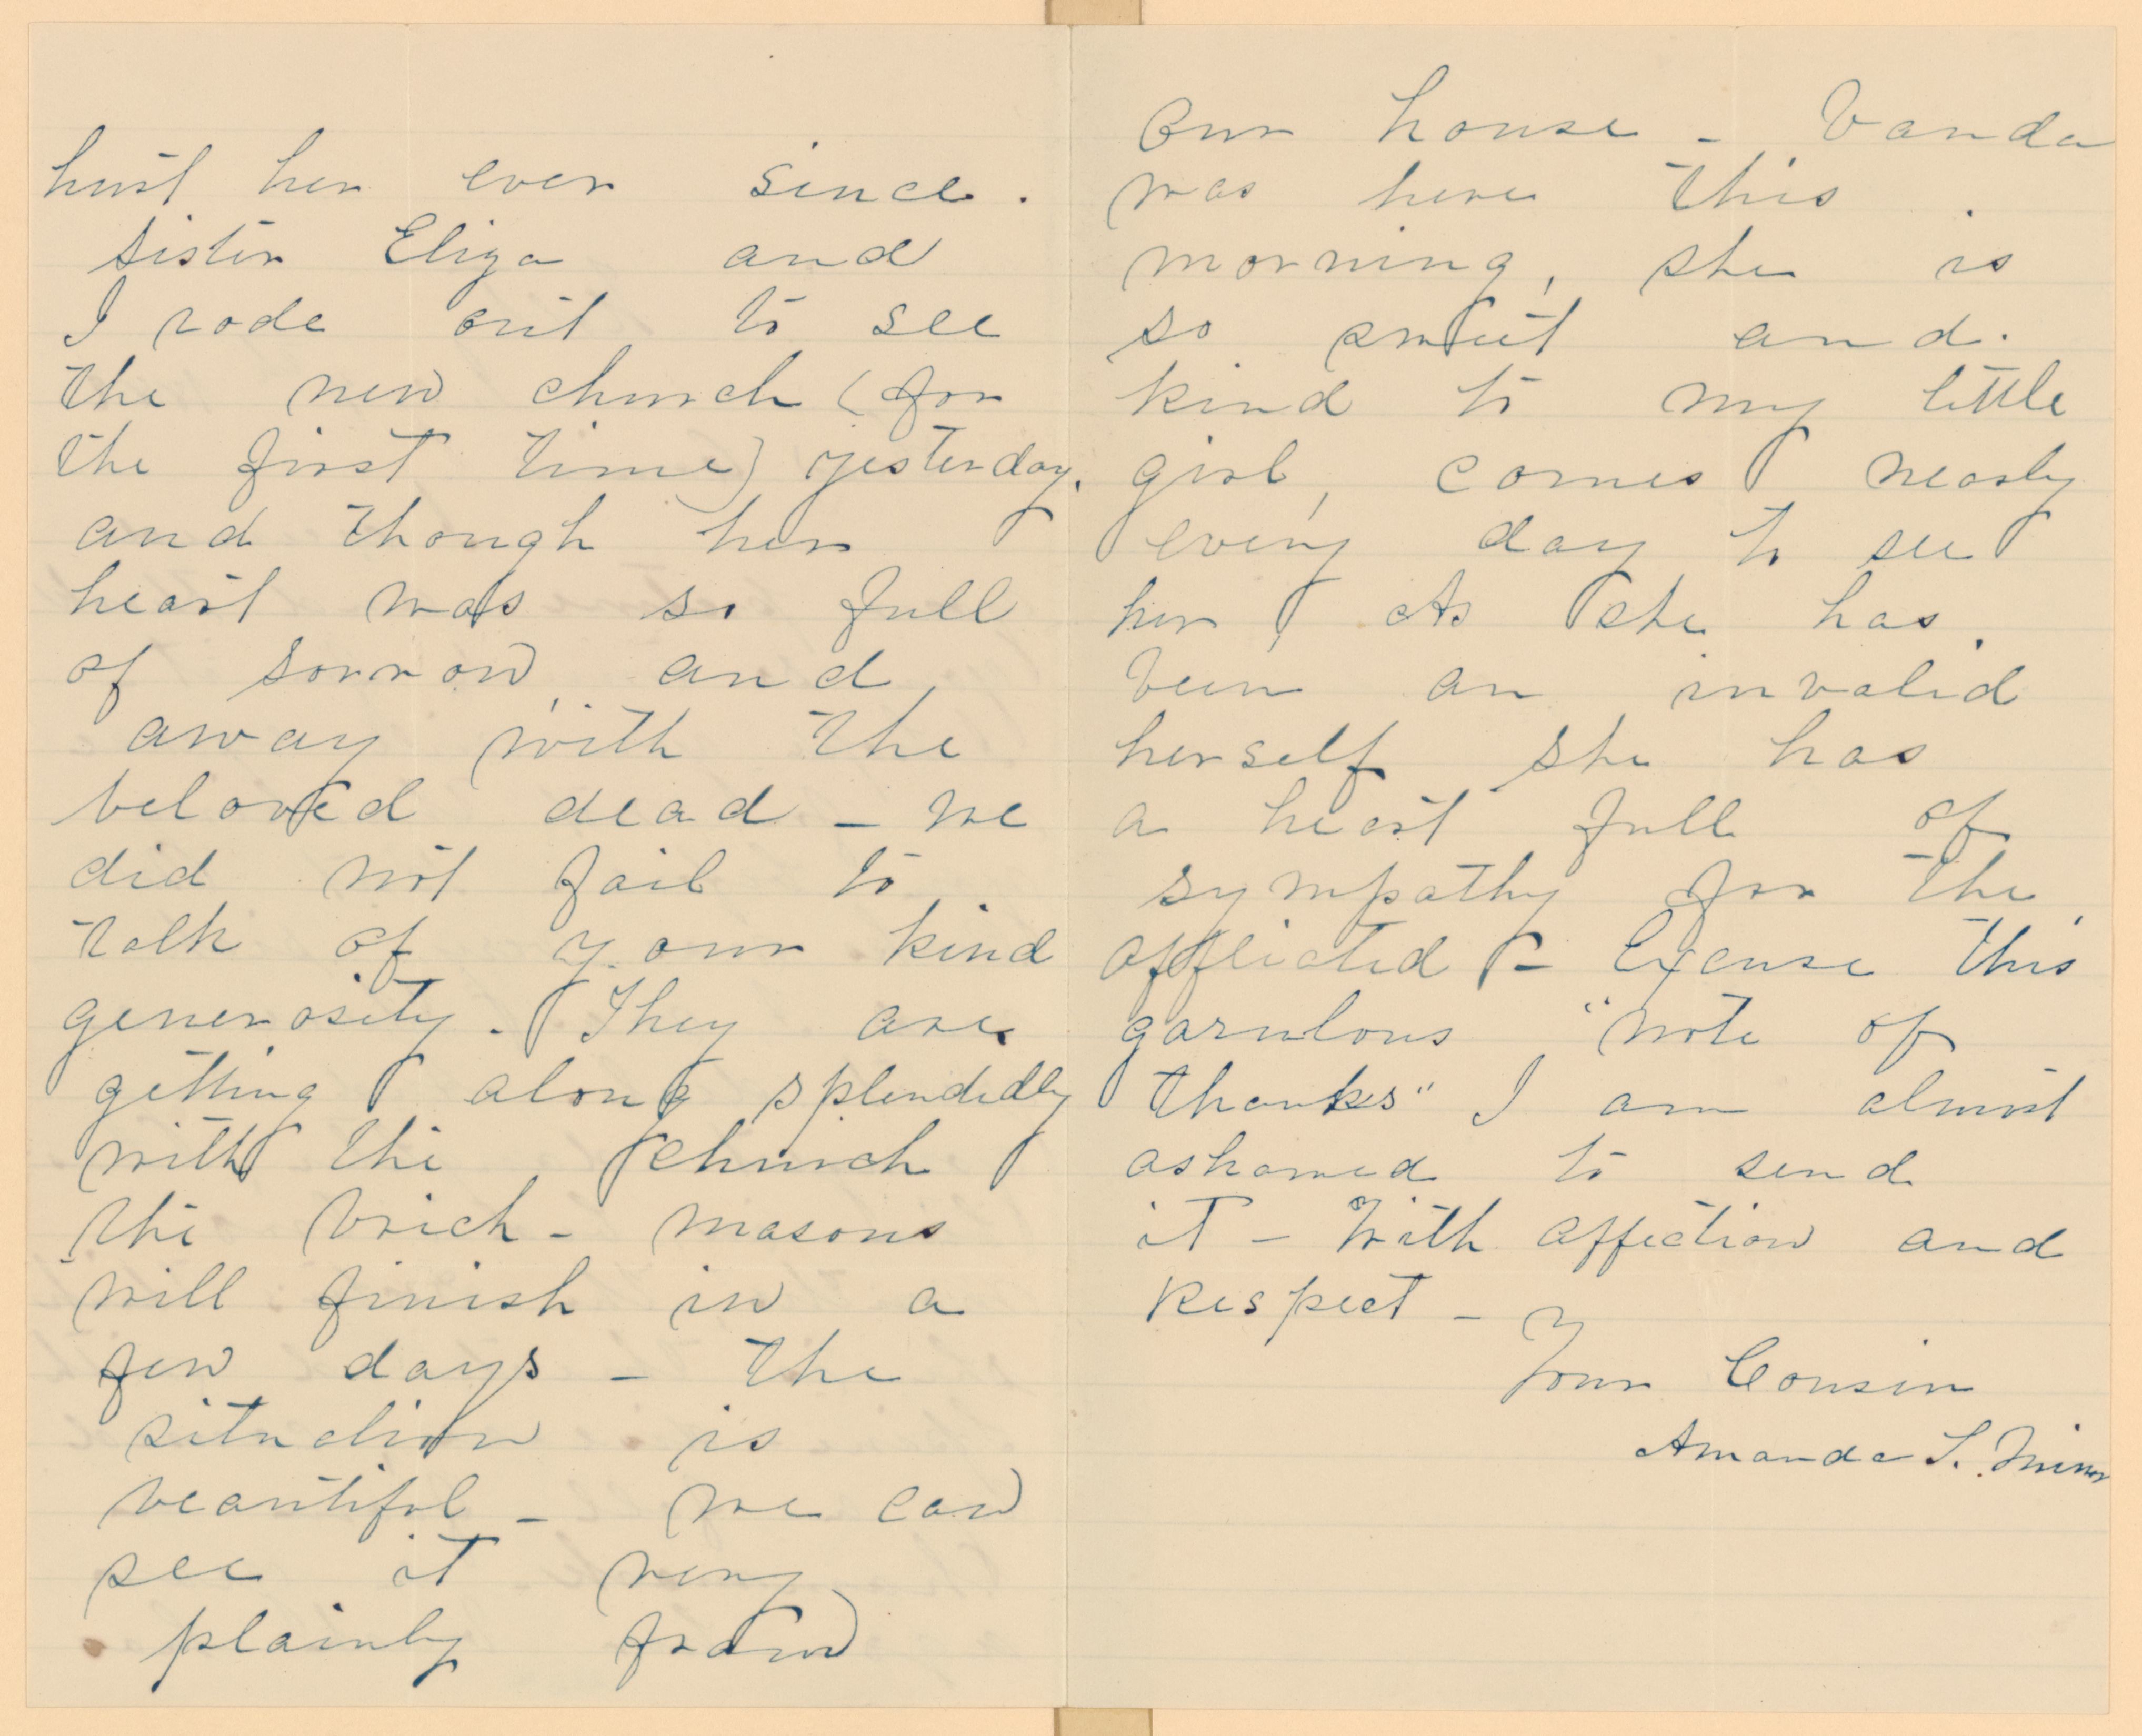 hurt her ever since.
Sister Eliza and
I rode out to see
the new church (for
the first time) yesterday,
and though her
heart was so full
of sorrow, and
away with the
beloved dead - we
did not fail to
talk of your kind
generosity. They are
getting along splendidly
with the church
the brick-masons
will finish in a
few days - the
situation is
beautiful - we can
see it very
plainly from
our house - Vanda
was here this
morning, she is
so sweet and
kind to my little
girl, comes nearly
every day to see
her, As she has
been an invalid
herself she has
a heart full of
sympathy for the
afflicted - Excuse this
garulous "note of
thanks" I am almost
ashamed to send
it - With affection and
Respect -
Your Cousin
Amanda